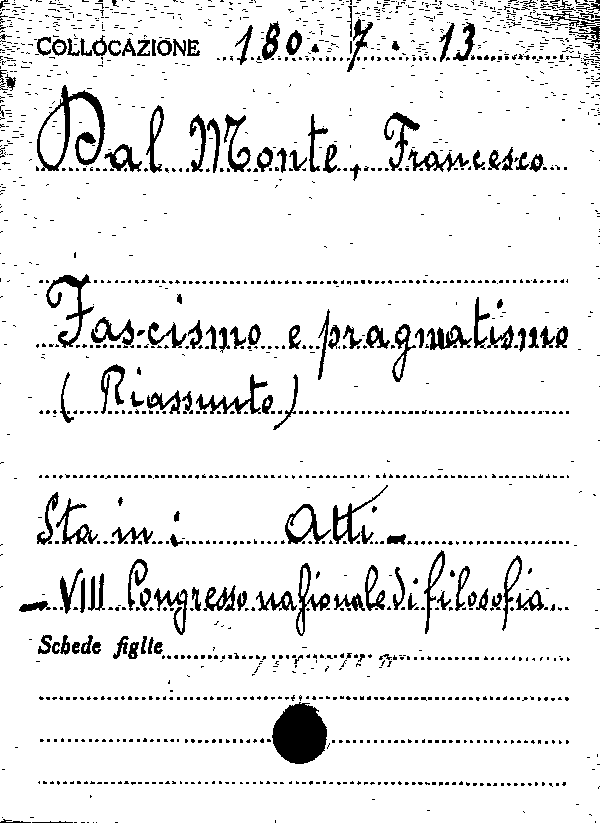 COLLOCAZIONE 180. 7. 13
Dal Monte, Francesco
Fascismo e pragmatismo
(Riassunto)
Sta in: Atti -
- VIII Congresso nazionale di filosofia.
Schede figlie